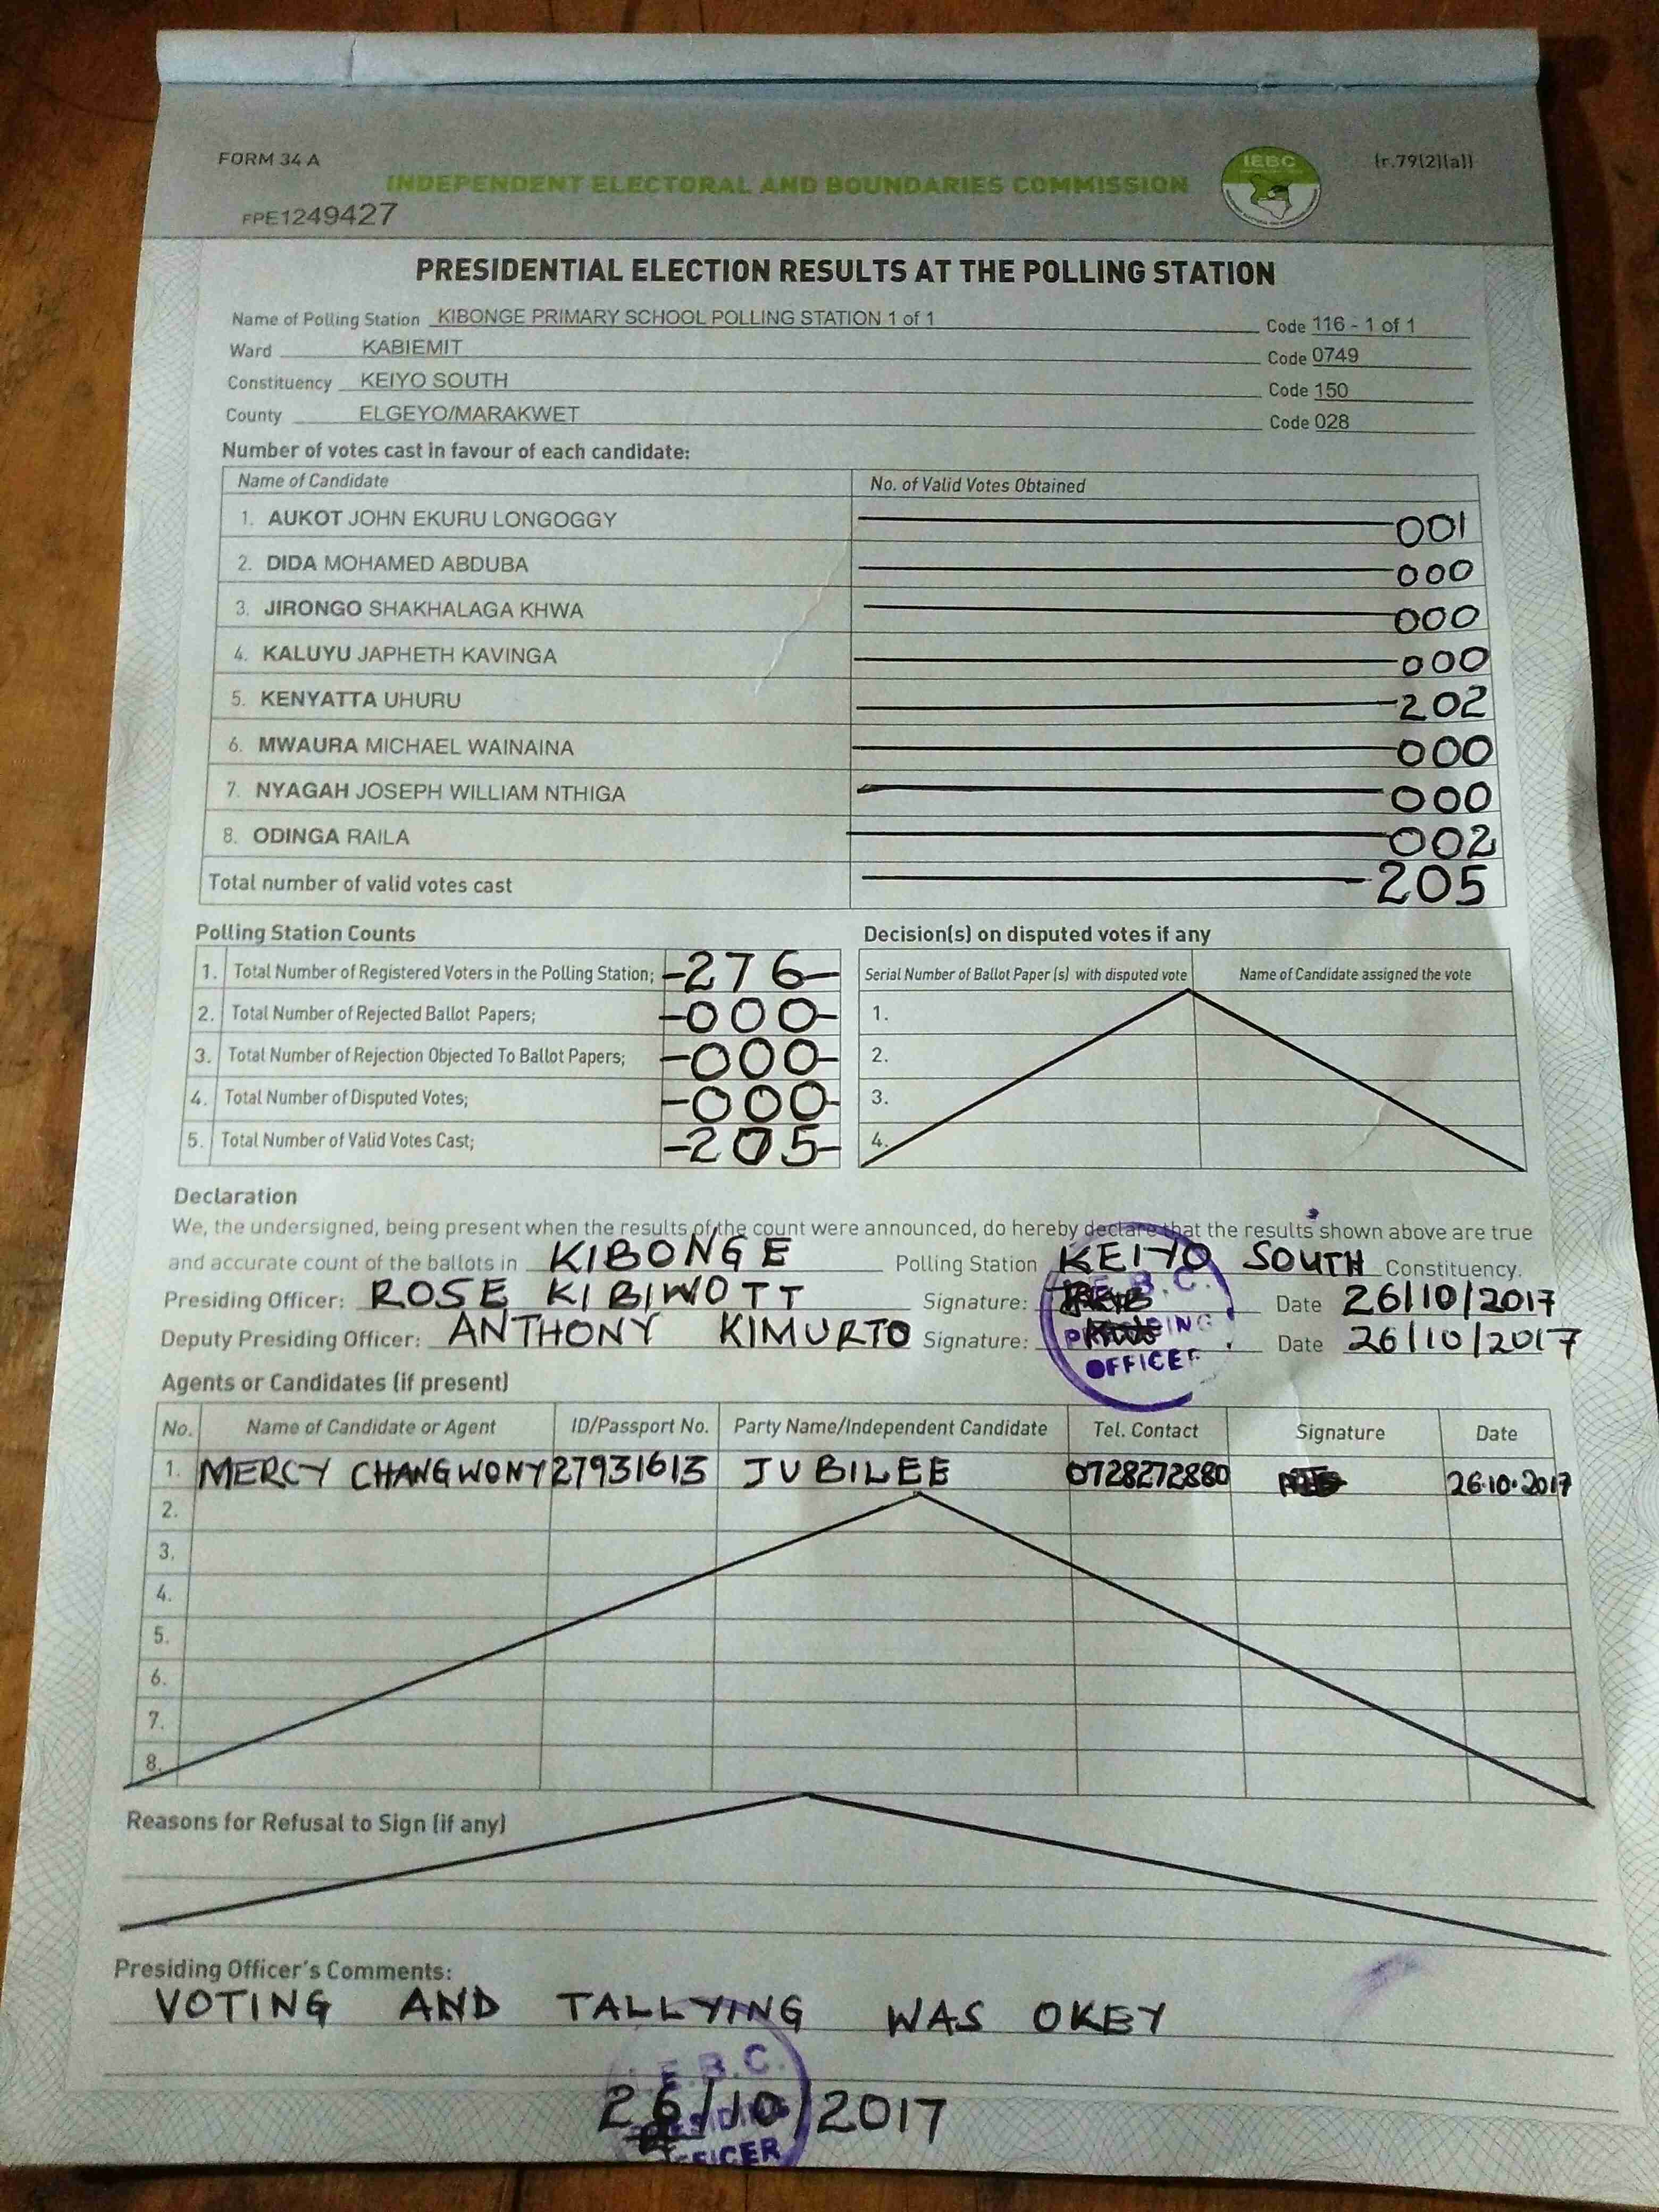 FORM 34 A
(r.79(2)(a))
IEBC
INDEPENDENT ELECTORAL AND BOUNDARIES COMMISSION
FPE1249427
PRESIDENTIAL ELECTION RESULTS AT THE POLLING STATION
Name of Polling Station KIBONGE PRIMARY SCHOOL POLLING STATION 1 of 1 Code 116 - 1 of 1
Ward KABIEMIT Code 0749
Constituency KEIYO SOUTH Code 150
County ELGEYO/MARAKWET Code 028
Number of votes cast in favour of each candidate:
Name of Candidate No. of Valid Votes Obtained
1. AUKOT JOHN EKURU LONGOGGY 001
2. DIDA MOHAMED ABDUBA 000
3. JIRONGO SHAKHALAGA KHWA 000
4. KALUYU JAPHETH KAVINGA 000
5. KENYATTA UHURU 202
6. MWAURA MICHAEL WAINAINA 000
7. NYAGAH JOSEPH WILLIAM NTHIGA 000
8. ODINGA RAILA 002
Total number of valid votes cast 205
Polling Station Counts
1. Total Number of Registered Voters in the Polling Station; 276
2. Total Number of Rejected Ballot Papers; 000
3. Total Number of Rejection Objected To Ballot Papers; 000
4. Total Number of Disputed Votes; 000
5. Total Number of Valid Votes Cast; 205
Decision(s) on disputed votes if any
Serial Number of Ballot Paper (s) with disputed vote Name of Candidate assigned the vote
1.
2.
3.
4.
Declaration
We, the undersigned, being present when the results of the count were announced, do hereby declare that the results shown above are true
and accurate count of the ballots in KIBONGE Polling Station KEIYO SOUTH Constituency.
Presiding Officer: ROSE KIBIWOTT Signature: Date 26/10/2017
Deputy Presiding Officer: ANTHONY KIMURTO Signature: Date 26/10/2017
E.B.C.
PRESIDING
OFFICER
Agents or Candidates (if present)
No. Name of Candidate or Agent ID/Passport No. Party Name/Independent Candidate Tel. Contact Signature Date
1. MERCY CHANGWONY 27931613 JUBILEE 0728272880 26.10.2017
2.
3.
4.
5.
6.
7.
8.
Reasons for Refusal to Sign (if any)
Presiding Officer's Comments:
VOTING AND TALLYING WAS OKEY
E.B.C.
26/10/2017
PRESIDING
OFFICER